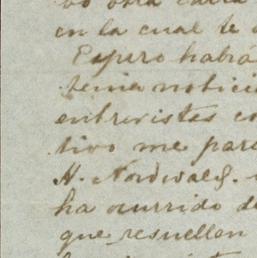 vo otra carta
en la cual te
Espero habrá
tenia notici
entrevistes co
tivo me pare
H. Nordwalg.
ha ocurrido de
que resuellan